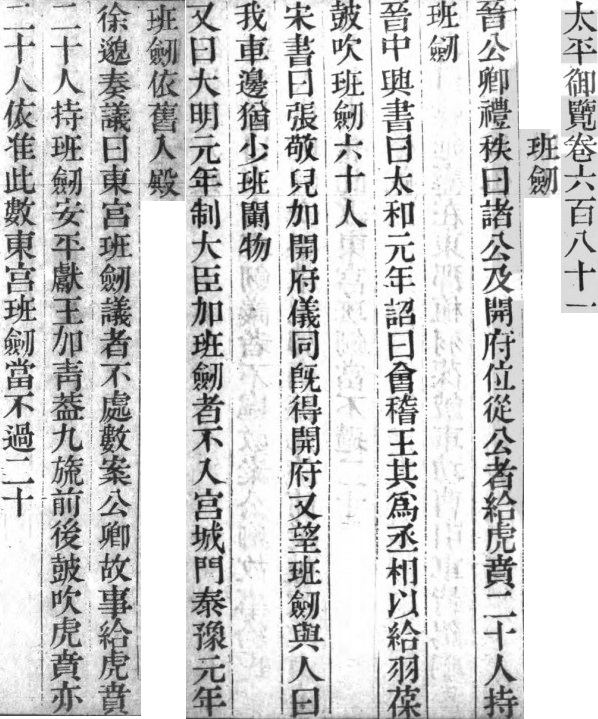 太平御覽卷六百八十一
班劒
晉公卿禮秩曰諸公及開府位從公者給虎賁二十人持
班劒
晉中興書曰太和元年詔曰會稽王其爲丞相以給羽葆
鼓吹班劒六十人
宋書曰張敬兒加開府儀同旣得開府又望班劒與人曰
我車邊猶少班闌物
又曰大明元年制大臣加班劒者不入宮城門泰豫元年
班劒依舊入殿
徐邈奏議曰東宮班劒議者不處數案公卿故事給虎賁
二十人持班劒安平獻王加靑葢九旒前後鼓吹虎賁亦
二十人依准此數東宮班劒當不過二十